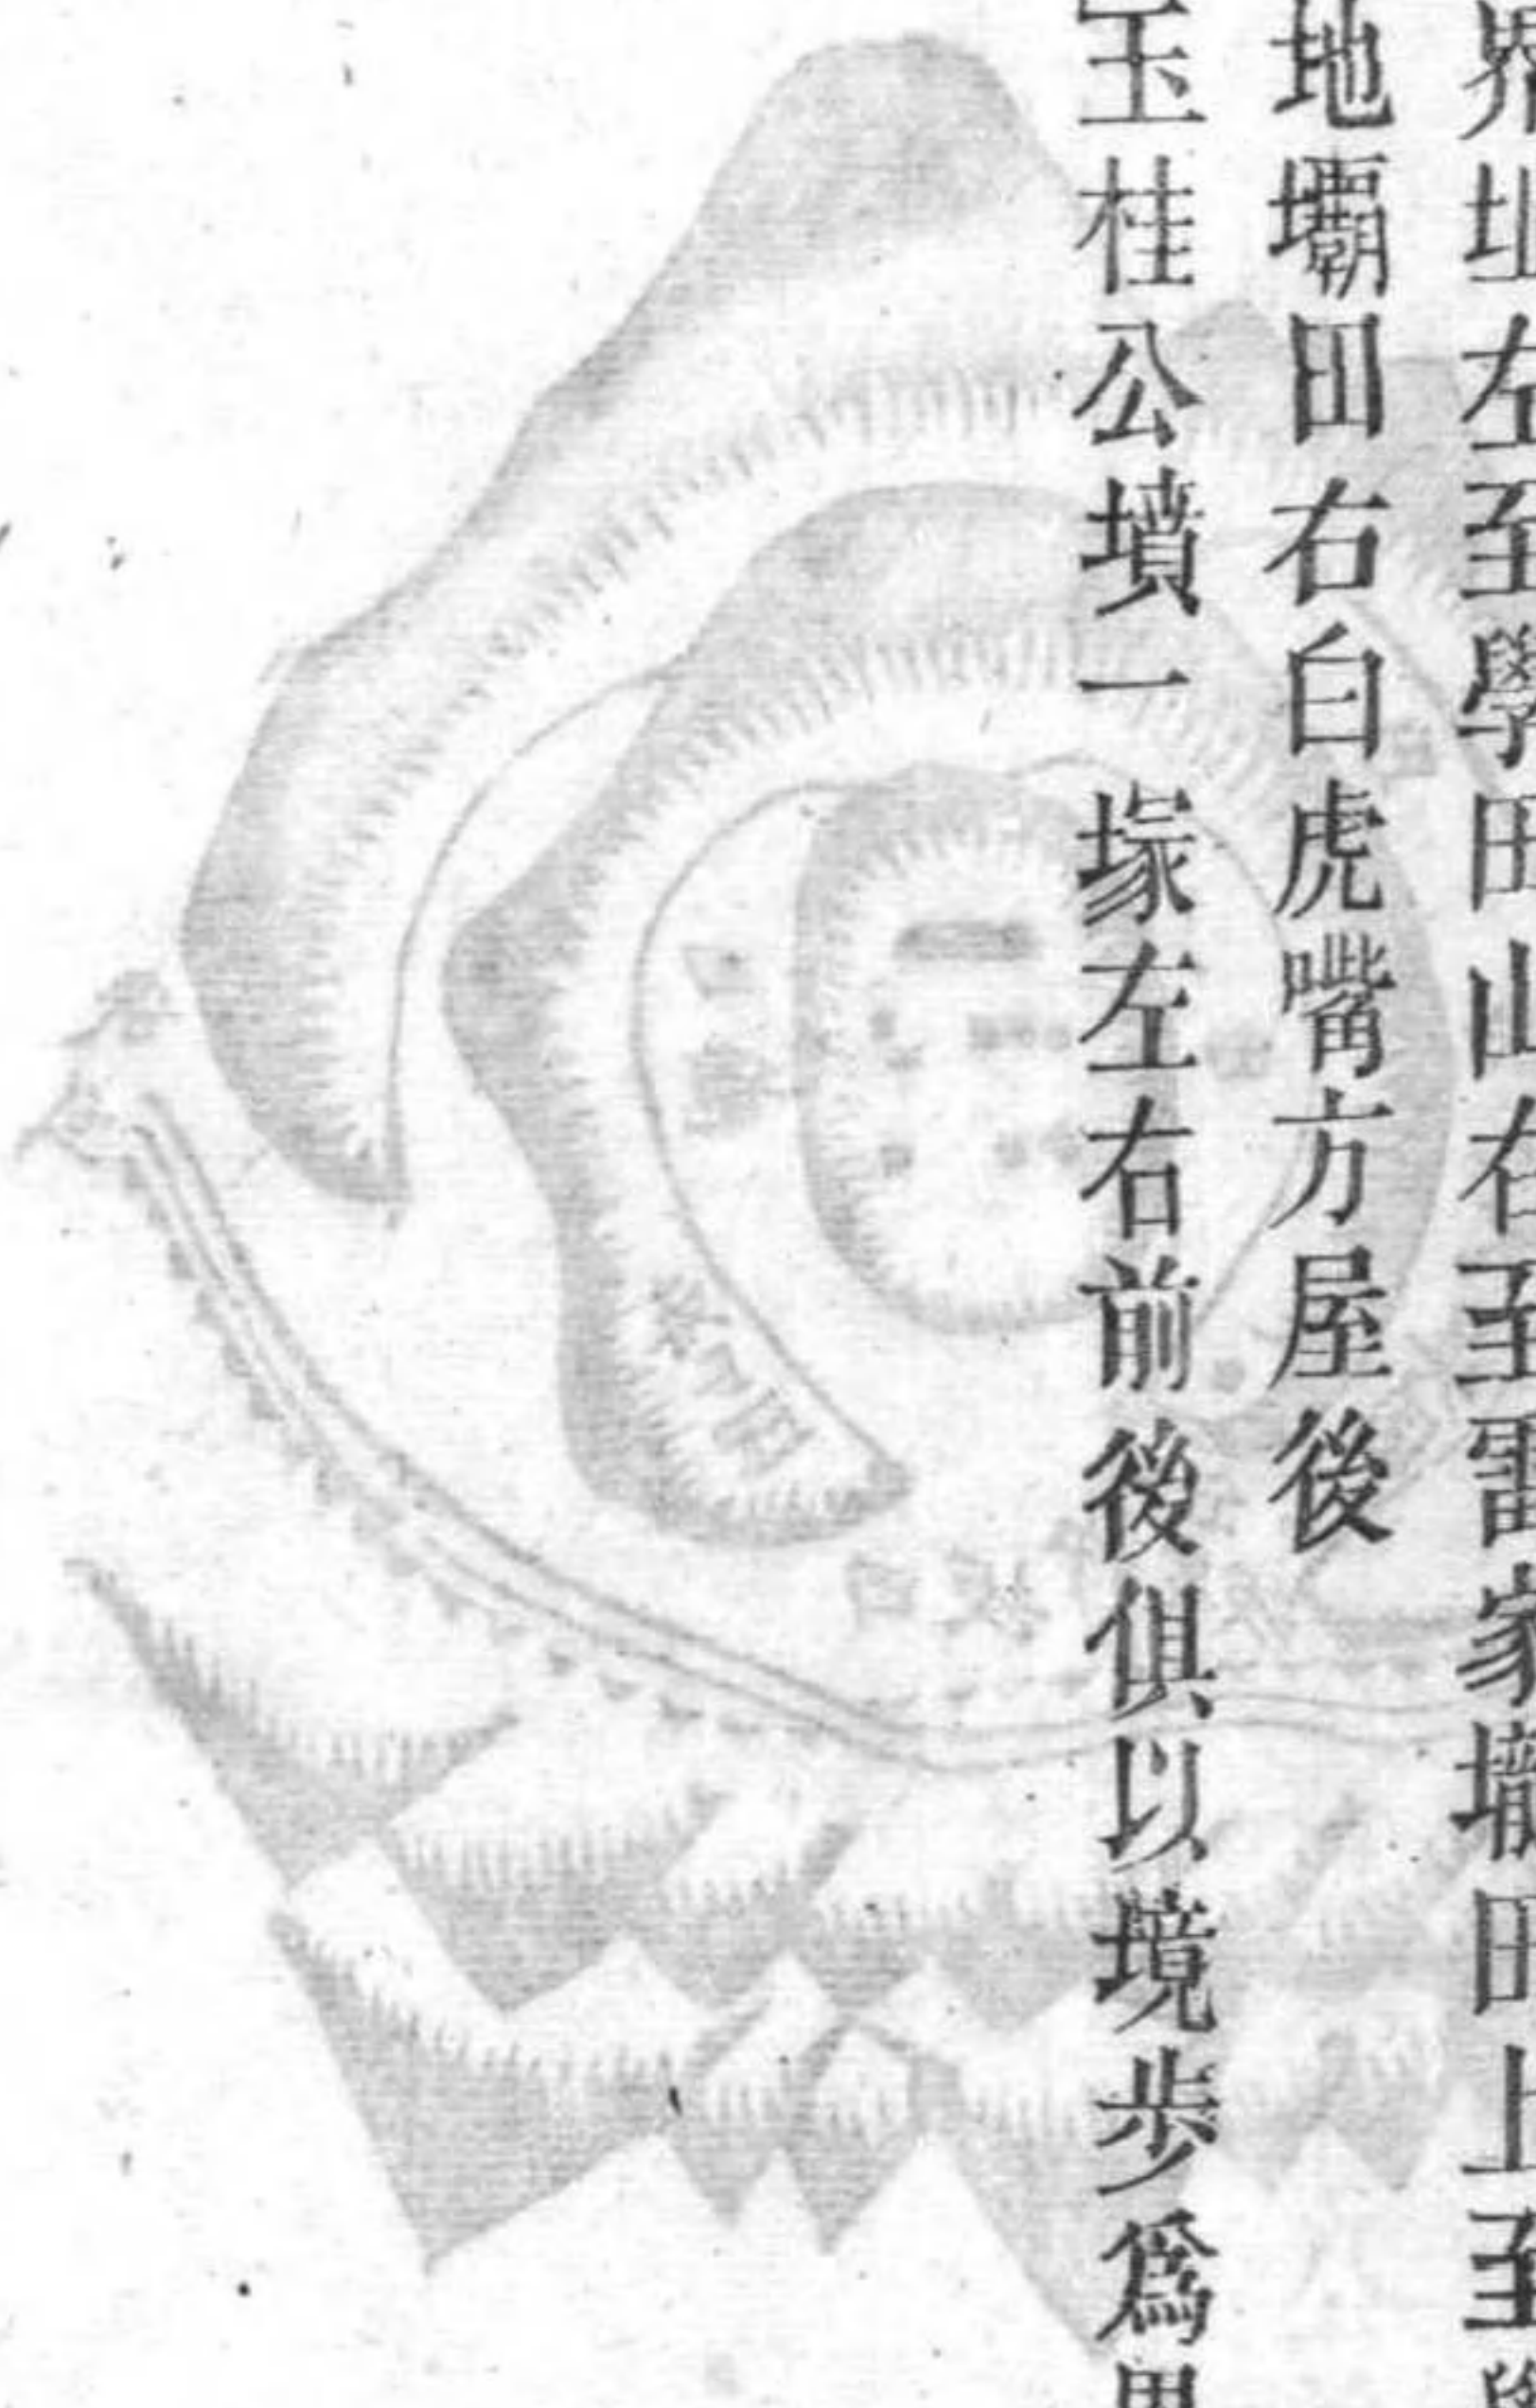 界址左至學田山右至雷家壪田上至
地壩田右白虎嘴方屋後
玉桂公墳一塚左右前後俱以境步爲界